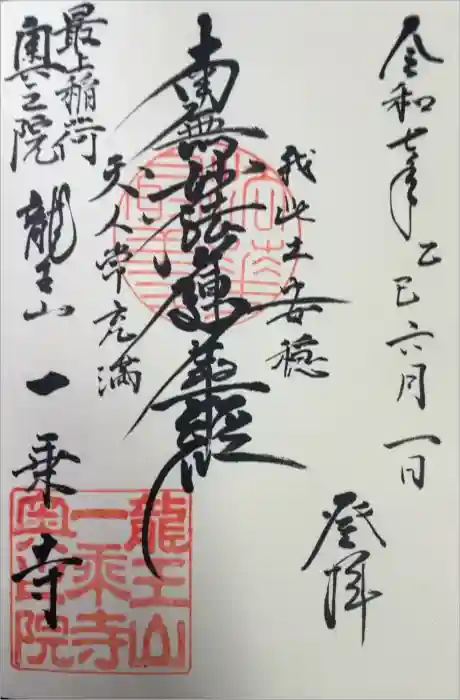 令和七年 乙巳 六月一日
登拝
我此土安穏
南無妙法蓮華経
天人常充満
最上稲荷
奥之院
龍王山 一乗寺
龍王山
一乗寺
奥之院